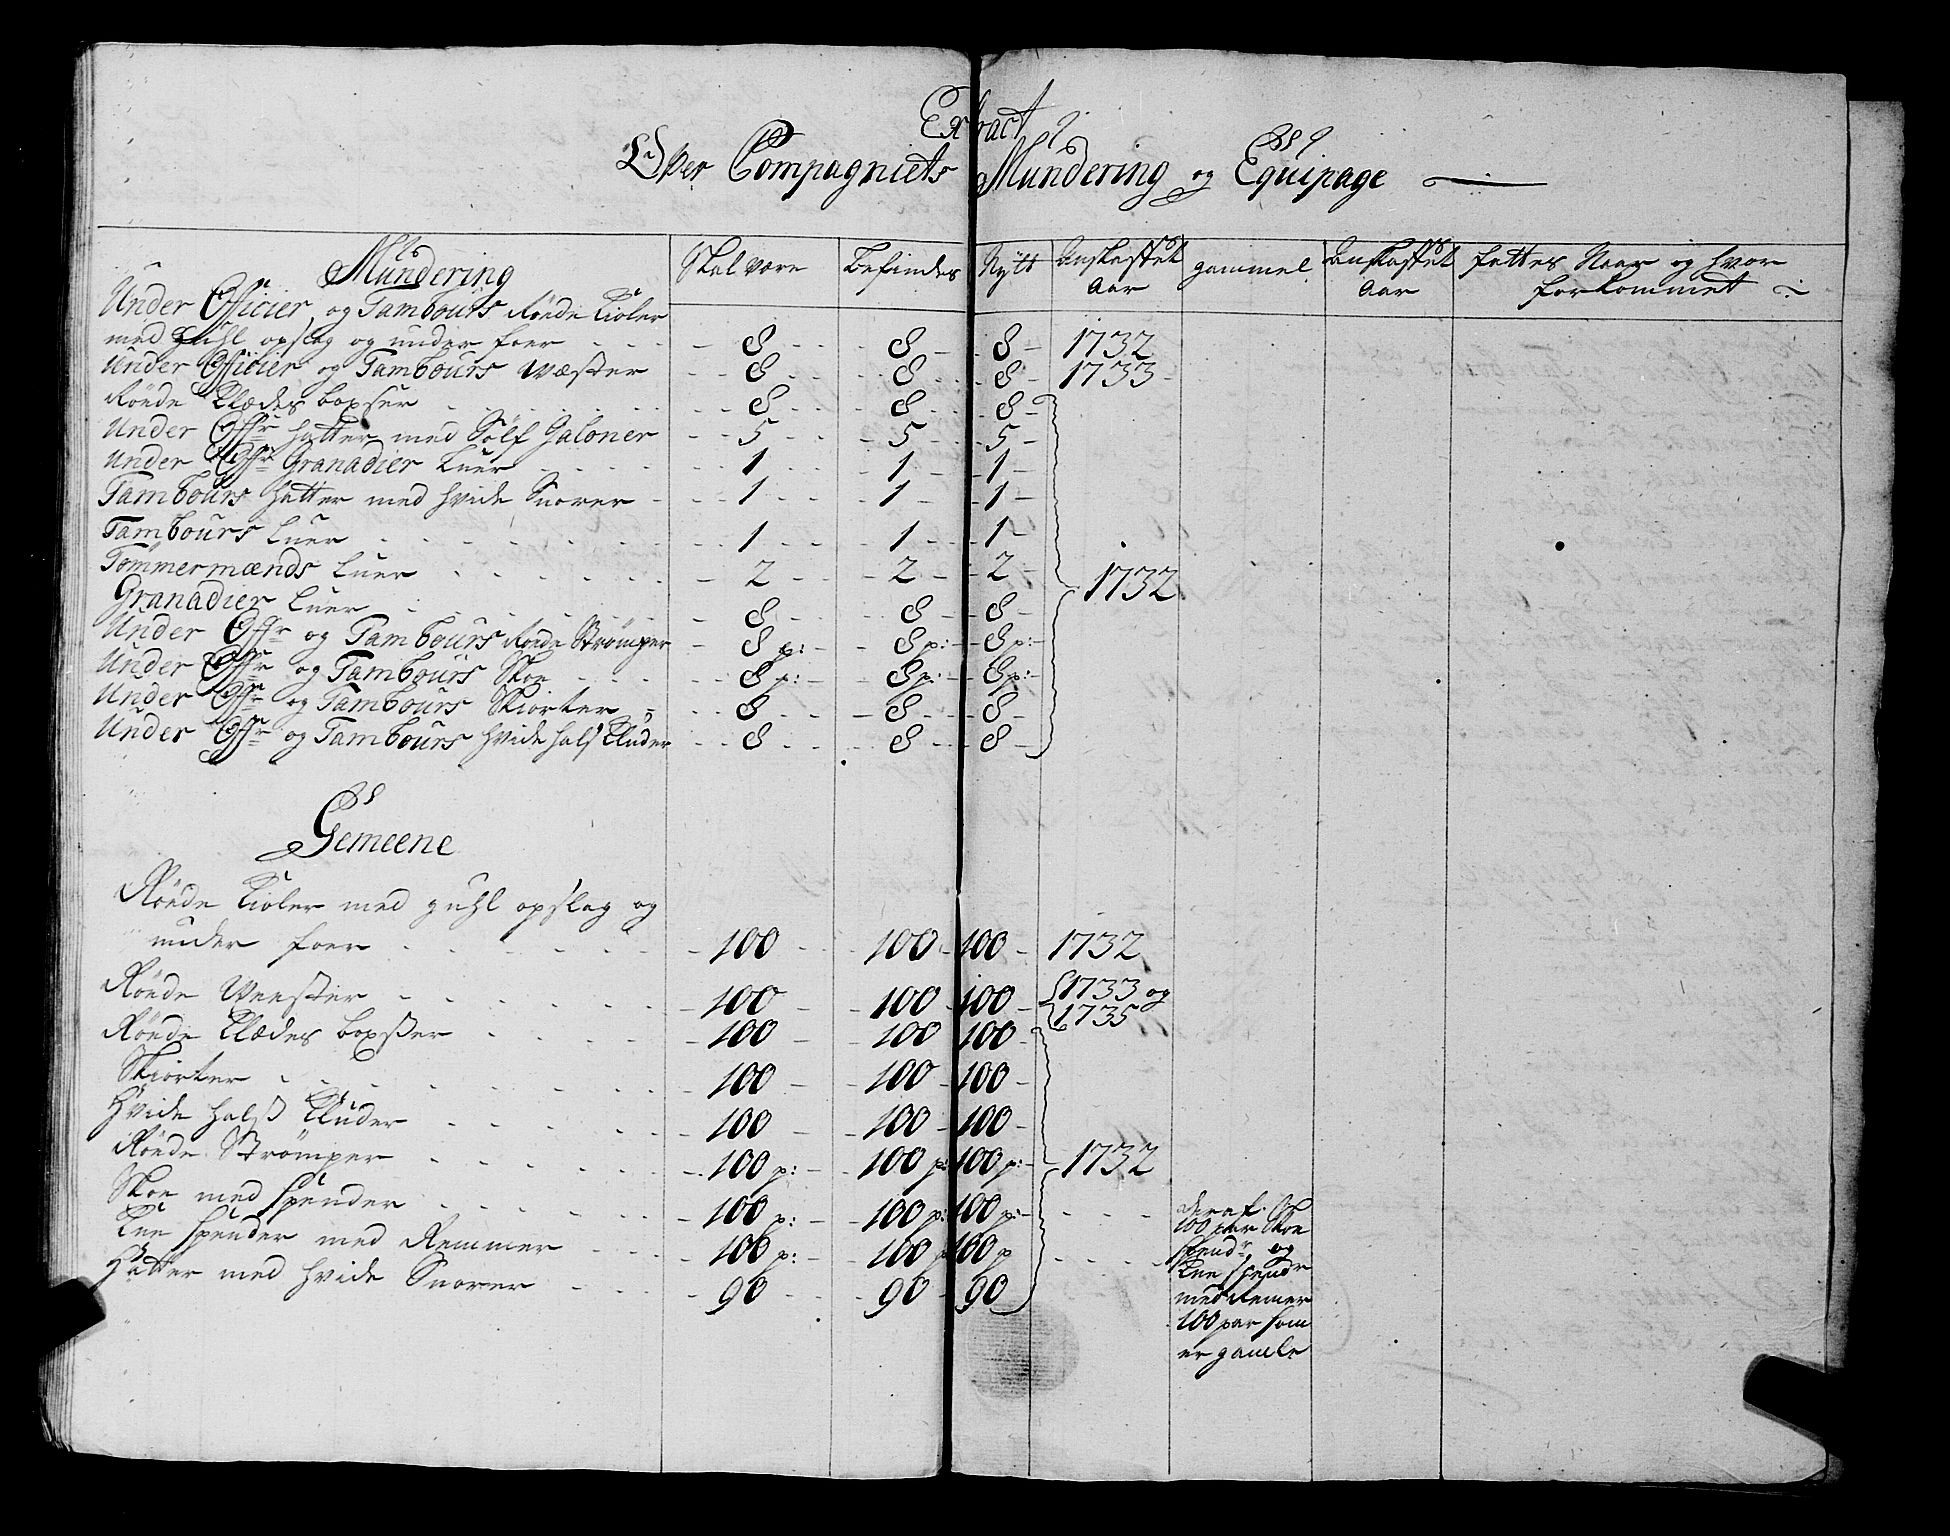 Extract
Over Compagniets Mundering og Equipage
Mundering Skal være Befindes Nÿtt Anskaffet Aar gammel Anskaffet Aar fattes Naar og hvor forkommet
Under Officier og Tambours Røede Kioler
med guhl opslag og under foer 8 8 8 1732
Under Officier og Tambours Wæster 8 8 8 1733
Røede Klædes boxser 8 8 8
Under Offr hatter med Sølf Galoner 5 5 5
Under Offr Granadier Luer 1 1 1
Tambours hatter med hvide Snorer 1 1 1
Tambours Luer 1 1 1
Tømmermænds Luer 2 2 2 1732
Granadier Luer 8 8 8
Under Offr og Tambours Røede Strømper 8 p: 8 p: 8 p:
Under Offr og Tambours Skoe 8 p: 8 p: 8 p:
Under Offr og Tambours Skiorter 8 8 8
Under Offr og Tambours hvide hals Kluder 8 8 8
Gemeene
Røede Kioler med guhl opslag og
under foer 100 100 100 1732
Røede Weester 100 100 100 1733 og
1735
Røede Klædes boxser 100 100 100
Skiorter 100 100 100
Hvide hals Kluder 100 100 100
Røede Strømper 100 p: 100 p: 100 p: 1732
Skoe med spender 100 p: 100 p: 100 p:
Knespender med Remmer 100 p: 100 p 100 p
Hatter med hvide Snorer 90 90 90
deraf
100 par Skoe
spendr og
Kne spendr
med Remer
100 par som
er gamle